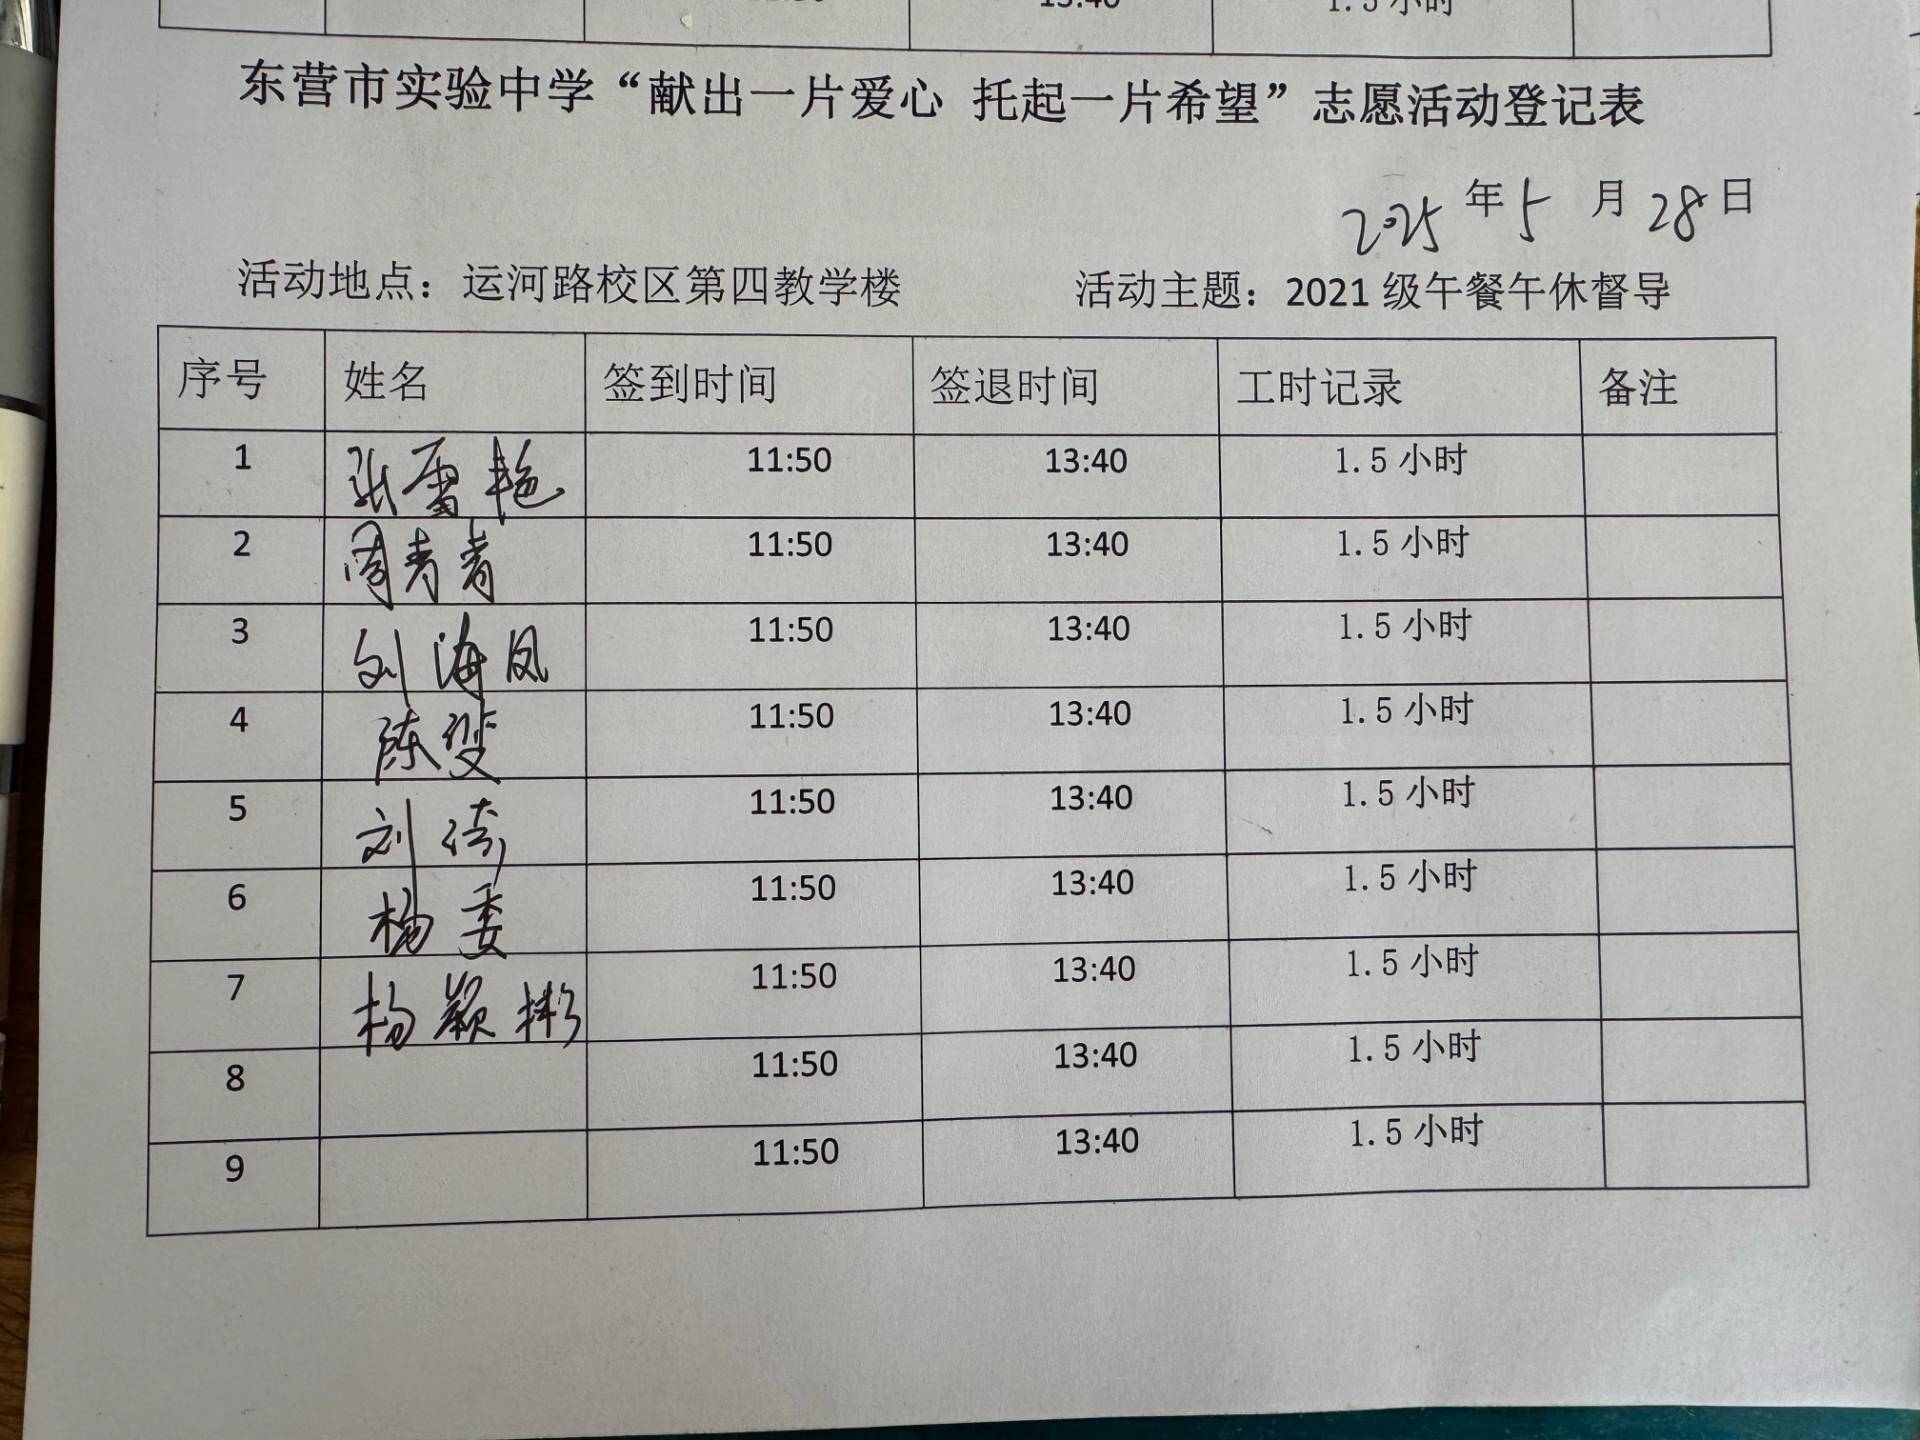 1.5 小时
东营市实验中学“献出一片爱心 托起一片希望”志愿活动登记表
2025 年 5 月 28 日
活动地点：运河路校区第四教学楼 活动主题：2021 级午餐午休督导
序号 姓名 签到时间 签退时间 工时记录 备注
1 张雷艳 11:50 13:40 1.5 小时
2 周青青 11:50 13:40 1.5 小时
3 刘海凤 11:50 13:40 1.5 小时
4 陈 11:50 13:40 1.5 小时
5 刘涛 11:50 13:40 1.5 小时
6 杨委 11:50 13:40 1.5 小时
7 杨颖彬 11:50 13:40 1.5 小时
8 11:50 13:40 1.5 小时
9 11:50 13:40 1.5 小时